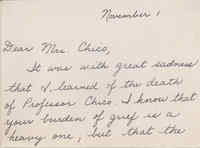 November 1
Dear Mrs. Chico,
It was with great sadness
that I learned of the death
of Professor Chico. I know that
your burden of grief is a
heavy one, but that the